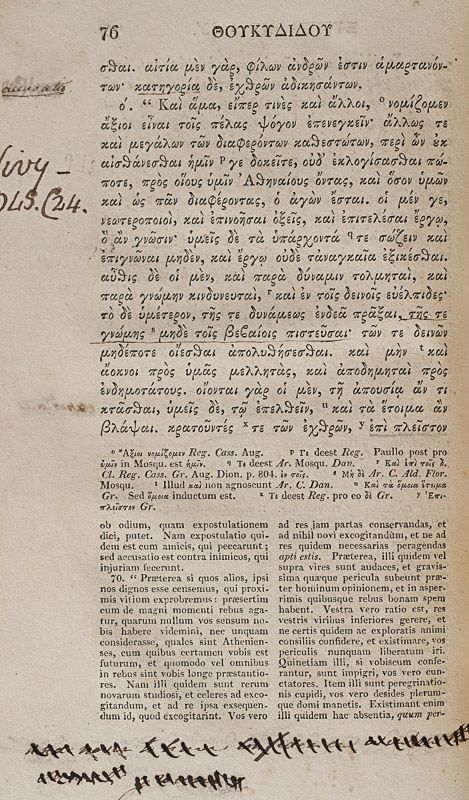 76 ΘΟΥΚΥΔΙΔΟΥ
σθαι. αἰτία μὲν γὰρ, φίλων ἀνδρῶν ἐστιν ἁμαρτανόν-
των· κατηγορία δὲ, ἐχθρῶν ἀδικησάντων.
ό. “ Καὶ ἅμα, εἴπερ τινὲς καὶ ἄλλοι, ᵒ νομίζομεν
ἄξιοι εἶναι τοῖς πέλας ψόγον ἐπενεγκεῖν· ἄλλως τε
καὶ μεγάλων τῶν διαφερόντων καθεστώτων, περὶ ὧν οὐκ
αἰσθάνεσθαι ἡμῖν ᵖ γε δοκεῖτε, οὐδ' ἐκλογίσασθαι πώ-
ποτε, πρὸς οἵους ὑμῖν Ἀθηναίους ὄντας, καὶ ὅσον ὑμῶν
καὶ ὡς πᾶν διαφέροντας, ὁ ἀγὼν ἔσται. οἱ μέν γε,
νεωτεροποιοὶ, καὶ ἐπινοῆσαι ὀξεῖς, καὶ ἐπιτελέσαι ἔργῳ,
ὃ ἂν γνῶσιν· ὑμεῖς δὲ τὰ ὑπάρχοντά ᑫ τε σώζειν καὶ
ἐπιγνῶναι μηδὲν, καὶ ἔργῳ οὐδὲ τἀναγκαῖα ἐξικέσθαι.
αὖθις δὲ οἱ μὲν, καὶ παρὰ δύναμιν τολμηταὶ, καὶ
παρὰ γνώμην κινδυνευταὶ, ʳ καὶ ἐν τοῖς δεινοῖς εὐέλπιδες·
τὸ δὲ ὑμέτερον, τῆς τε δυνάμεως ἐνδεᾶ πρᾶξαι, τῆς τε
γνώμης ˢ μηδὲ τοῖς βεβαίοις πιστεῦσαι· τῶν τε δεινῶν
μηδέποτε οἴεσθαι ἀπολυθήσεσθαι. καὶ μὴν ᵗ καὶ
ἄοκνοι πρὸς ὑμᾶς μελλητὰς, καὶ ἀποδημηταὶ πρὸς
ἐνδημοτάτους. οἴονται γὰρ οἱ μὲν, τῇ ἀπουσίᾳ ἄν τι
κτᾶσθαι, ὑμεῖς δὲ, τῷ ἐπελθεῖν, ᵘ καὶ τὰ ἕτοιμα ἂν
βλάψαι. κρατοῦντές ˣ τε τῶν ἐχθρῶν, ʸ ἐπὶ πλεῖστον
ᵒ Ἄξιοι νομίζομεν Reg. Cass. Aug. ᵖ Τε deest Reg. Paullo post pro
ὑμῖν in Mosqu. est ἡμῖν. ᑫ Τε deest Ar. Mosqu. Dan. ʳ Καὶ ἐπὶ τοῖς δ.
Cl. Reg. Cass. Gr. Aug. Dion. p. 804. ἐν τοῖς. ˢ Μὴ δὶ Ar. C. Ald. Flor.
Mosqu. ᵗ Illud καὶ non agnoscunt Ar. C. Dan. ᵘ Καὶ τὰ ὅμοια ἕτοιμα
Gr. Sed ὅμοια inductum est. ˣ Τε deest Reg. pro eo δὶ Gr. ʸ Ἐπι-
πλεῖστον Gr.
ob odium, quam expostulationem
dici, putet. Nam expostulatio qui-
dem est cum amicis, qui peccarunt;
sed accusatio est contra inimicos, qui
injuriam fecerunt.
70. “ Præterea si quos alios, ipsi
nos dignos esse censemus, qui proxi-
mis vitium exprobremus: præsertim
cum de magni momenti rebus aga-
tur, quarum nullum vos sensum no-
bis habere videmini, nec unquam
considerasse, quales sint Athenien-
ses, cum quibus certamen vobis est
futurum, et quomodo vel omnibus
in rebus sint vobis longe præstantio-
res. Nam illi quidem sunt rerum
novarum studiosi, et celeres ad exco-
gitandum, et ad re ipsa exsequen-
dum id, quod excogitarint. Vos vero
ad res jam partas conservandas, et
ad nihil novi excogitandum, et ne ad
res quidem necessarias peragendas
apti estis. Præterea, illi quidem vel
supra vires sunt audaces, et gravis-
sima quæque pericula subeunt præ-
ter hominum opinionem, et in asper-
rimis quibusque rebus bonam spem
habent. Vestra vero ratio est, res
vestris viribus inferiores gerere, et
ne certis quidem ac exploratis animi
consiliis confidere, et existimare, vos
periculis nunquam liberatum iri.
Quinetiam illi, si vobiscum confe-
rantur, sunt impigri, vos vero cun-
ctatores. Item illi sunt peregrinatio-
nis cupidi, vos vero desides plerum-
que domi manetis. Existimant enim
illi quidem hac absentia, quum per-